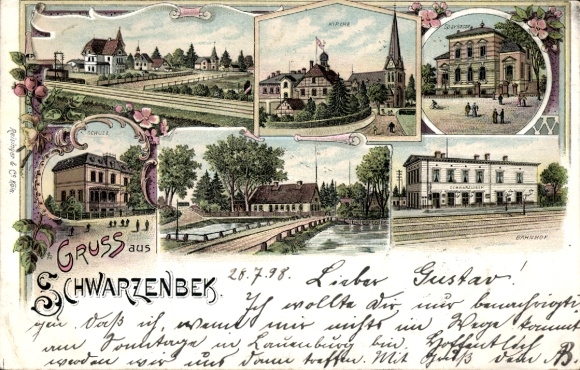 KIRCHE
Sparkasse
SCHULE
Reulinger & Co
SCHWARZENBEK
BAHNHOF.
GRUSS aus
SCHWARZENBEK.
28.7.98. Lieber Gustav!
Ich wollte dir nur benachrichti-
gen, daß ich, wenn mir nichts im Wege kommt
am Sonntage in Lauenburg bin. Hoffentlich
werden wir uns dann treffen. Mit Gruß dein